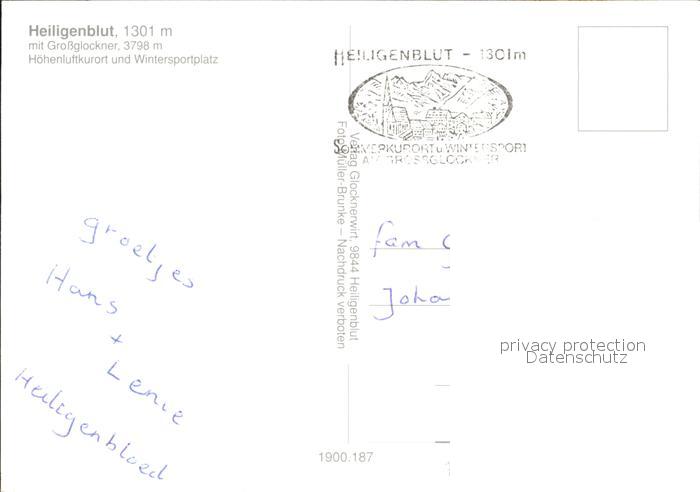 Heiligenblut, 1301 m
mit Großglockner, 3798 m
Höhenluftkurort und Wintersportplatz
HEILIGENBLUT - 1301m
SOMMERKURORT u. WINTERSPORT
AM GROSSGLOCKNER
Verlag Glocknerwirt, 9844 Heiligenblut
Foto: Müller-Brunke – Nachdruck verboten
groetjes
Hans
+
Lenie
Heiligenbloed
fam
Joha
privacy protection
Datenschutz
1900.187